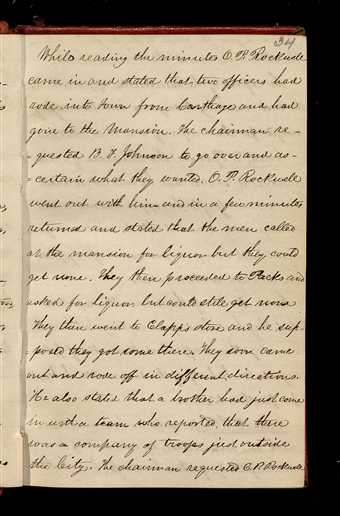 34
While reading the minutes O. P. Rockwell
came in and stated that two officers had
rode into town from Carthage and had
gone to the Mansion. The chairman re-
-quested B. F. Johnson to go over and as-
-certain what they wanted. O. P. Rockwell
went out with him and in a few minutes
returned and stated that the men called
at the mansion for liquor but they could
get none. They then proceeded to and
asked for liquor but could still get none
They then went to Clapps store and he sup-
-posed they got some there. They soon came
out and rode off in different directions.
He also stated that a brother had just come
in with a team who reported, that there
was a company of troops just outside
the City. The chairman requested O. P. Rockwell